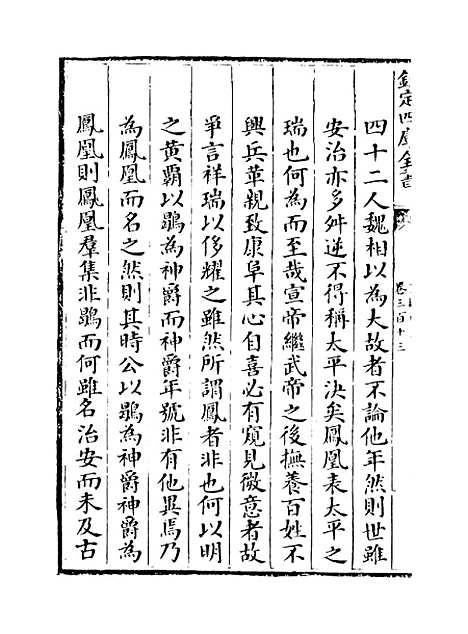 欽定四庫全書
卷三百十三
四十二人魏相以為大故者不論他年然則世雖
安治亦多舛逆不得稱太平決矣鳳凰表太平之
瑞也何為而至哉宣帝繼武帝之後撫養百姓不
興兵革親致康阜其心自喜必有窺見微意者故
爭言祥瑞以侈耀之雖然所謂鳳者非也何以明
之黃霸以鶡為神爵而神爵年號非有他異焉乃
為鳳凰而名之然則其時公以鶡為神爵神爵為
鳳凰則鳳凰羣集非鶡而何雖名治安而未及古